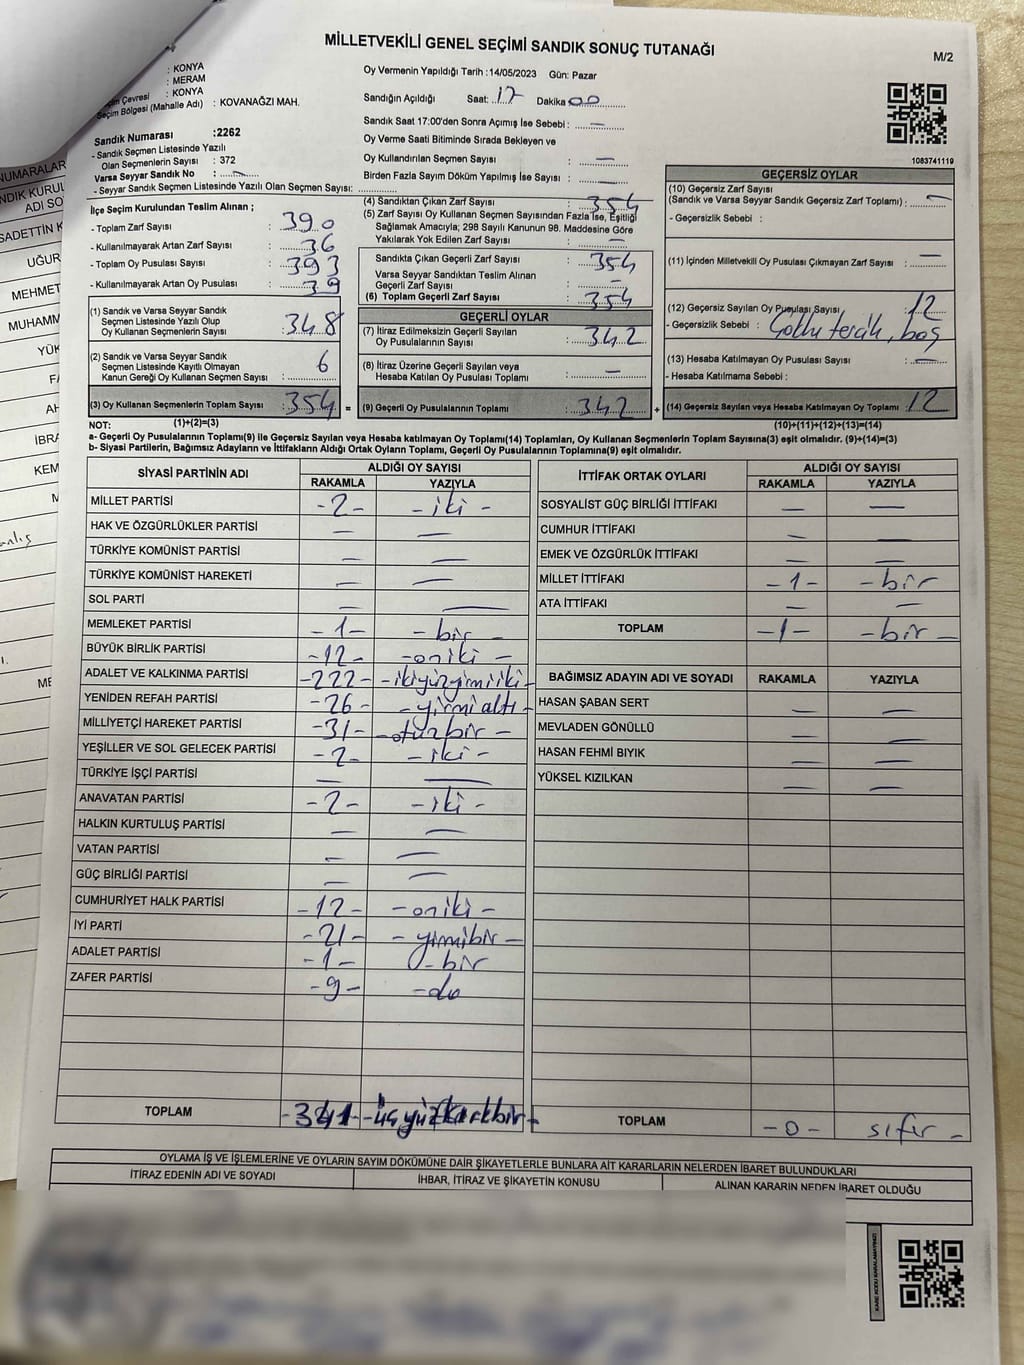 MİLLETVEKİLİ GENEL SEÇİMİ SANDIK SONUÇ TUTANAĞI
M/2
: KONYA
: MERAM
Çevresi : KONYA
Seçim Bölgesi (Mahalle Adı) : KOVANAĞZI MAH.
Sandık Numarası :2262
- Sandık Seçmen Listesinde Yazılı
Olan Seçmenlerin Sayısı : 372
Varsa Seyyar Sandık No : —
- Seyyar Sandık Seçmen Listesinde Yazılı Olan Seçmen Sayısı:
Oy Vermenin Yapıldığı Tarih :14/05/2023 Gün: Pazar
Sandığın Açıldığı Saat: 17 Dakika 00
Sandık Saat 17:00'den Sonra Açımış İse Sebebi : —
Oy Verme Saati Bitiminde Sırada Bekleyen ve
Oy Kullandırılan Seçmen Sayısı : —
Birden Fazla Sayım Döküm Yapılmış İse Sayısı : —
1083741119
İlçe Seçim Kurulundan Teslim Alınan ;
- Toplam Zarf Sayısı : 390
- Kullanılmayarak Artan Zarf Sayısı : 36
- Toplam Oy Pusulası Sayısı : 393
- Kullanılmayarak Artan Oy Pusulası : 39
(1) Sandık ve Varsa Seyyar Sandık
Seçmen Listesinde Yazılı Olup
Oy Kullanan Seçmenlerin Sayısı : 348
(2) Sandık ve Varsa Seyyar Sandık
Seçmen Listesinde Kayıtlı Olmayan
Kanun Gereği Oy Kullanan Seçmen Sayısı : 6
(3) Oy Kullanan Seçmenlerin Toplam Sayısı : 354 =
(1)+(2)=(3)
(4) Sandıktan Çıkan Zarf Sayısı : 354
(5) Zarf Sayısı Oy Kullanan Seçmen Sayısından Fazla İse, Eşitliği
Sağlamak Amacıyla; 298 Sayılı Kanunun 98. Maddesine Göre
Yakılarak Yok Edilen Zarf Sayısı : —
Sandıkta Çıkan Geçerli Zarf Sayısı : 354
Varsa Seyyar Sandıktan Teslim Alınan
Geçerli Zarf Sayısı : —
(6) Toplam Geçerli Zarf Sayısı : 354
GEÇERLİ OYLAR
(7) İtiraz Edilmeksizin Geçerli Sayılan
Oy Pusulalarının Sayısı : 342
(8) İtiraz Üzerine Geçerli Sayılan veya
Hesaba Katılan Oy Pusulası Toplamı : —
(9) Geçerli Oy Pusulalarının Toplamı : 342 +
GEÇERSİZ OYLAR
(10) Geçersiz Zarf Sayısı
(Sandık ve Varsa Seyyar Sandık Geçersiz Zarf Toplamı) : —
- Geçersizlik Sebebi :
(11) İçinden Milletvekili Oy Pusulası Çıkmayan Zarf Sayısı : —
(12) Geçersiz Sayılan Oy Pusulası Sayısı : 12
- Geçersizlik Sebebi : Çoklu tercih, boş
(13) Hesaba Katılmayan Oy Pusulası Sayısı : —
- Hesaba Katılmama Sebebi :
(14) Geçersiz Sayılan veya Hesaba Katılmayan Oy Toplamı 12
(10)+(11)+(12)+(13)=(14)
NOT:
a- Geçerli Oy Pusulalarının Toplamı(9) ile Geçersiz Sayılan veya Hesaba katılmayan Oy Toplamı(14) Toplamları, Oy Kullanan Seçmenlerin Toplam Sayısına(3) eşit olmalıdır. (9)+(14)=(3)
b- Siyasi Partilerin, Bağımsız Adayların ve İttifakların Aldığı Ortak Oyların Toplamı, Geçerli Oy Pusulalarının Toplamına(9) eşit olmalıdır.
SİYASİ PARTİNİN ADI ALDIĞI OY SAYISI
RAKAMLA YAZIYLA
MİLLET PARTİSİ -2- -iki-
HAK VE ÖZGÜRLÜKLER PARTİSİ — —
TÜRKİYE KOMÜNİST PARTİSİ — —
TÜRKİYE KOMÜNİST HAREKETİ — —
SOL PARTİ — —
MEMLEKET PARTİSİ -1- -bir-
BÜYÜK BİRLİK PARTİSİ -12- -oniki-
ADALET VE KALKINMA PARTİSİ -222- -ikiyüzyimiiki-
YENİDEN REFAH PARTİSİ -26- -yirmialtı-
MİLLİYETÇİ HAREKET PARTİSİ -31- -otuzbir-
YEŞİLLER VE SOL GELECEK PARTİSİ -2- -iki-
TÜRKİYE İŞÇİ PARTİSİ — —
ANAVATAN PARTİSİ -2- -iki-
HALKIN KURTULUŞ PARTİSİ — —
VATAN PARTİSİ — —
GÜÇ BİRLİĞİ PARTİSİ — —
CUMHURİYET HALK PARTİSİ -12- -oniki-
İYİ PARTİ -21- -yimibir-
ADALET PARTİSİ -1- -bir
ZAFER PARTİSİ -9-
TOPLAM -341- -üçyüzkırkbir-
İTTİFAK ORTAK OYLARI ALDIĞI OY SAYISI
RAKAMLA YAZIYLA
SOSYALİST GÜÇ BİRLİĞİ İTTİFAKI — —
CUMHUR İTTİFAKI — —
EMEK VE ÖZGÜRLÜK İTTİFAKI — —
MİLLET İTTİFAKI -1- -bir
ATA İTTİFAKI — —
TOPLAM -1- -bir-
BAĞIMSIZ ADAYIN ADI VE SOYADI RAKAMLA YAZIYLA
HASAN ŞABAN SERT — —
MEVLADEN GÖNÜLLÜ — —
HASAN FEHMİ BIYIK — —
YÜKSEL KIZILKAN — —
TOPLAM -0- sıfır-
OYLAMA İŞ VE İŞLEMLERİNE VE OYLARIN SAYIM DÖKÜMÜNE DAİR ŞİKAYETLERLE BUNLARA AİT KARARLARIN NELERDEN İBARET BULUNDUKLARI
İTİRAZ EDENİN ADI VE SOYADI İHBAR, İTİRAZ VE ŞİKAYETİN KONUSU ALINAN KARARIN NEDEN İBARET OLDUĞU